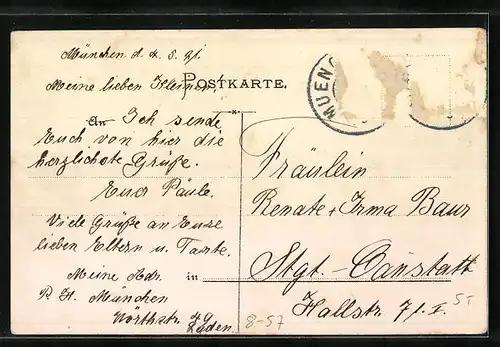 München d. 4. 5. 21.
Meine lieben Kleinen
POSTKARTE.
An Ich sende
Euch von hier die
herzlichste Grüße.
Euer Paule.
Viele Grüße an Eure
lieben Eltern u. Tante.
Meine Adr. in
P. H. München
Wörthstr.
Laden.
MUEN
Fräulein
Renate + Irma Baur
Stgt.-Canstatt
Hallstr. 71. I.
8-57